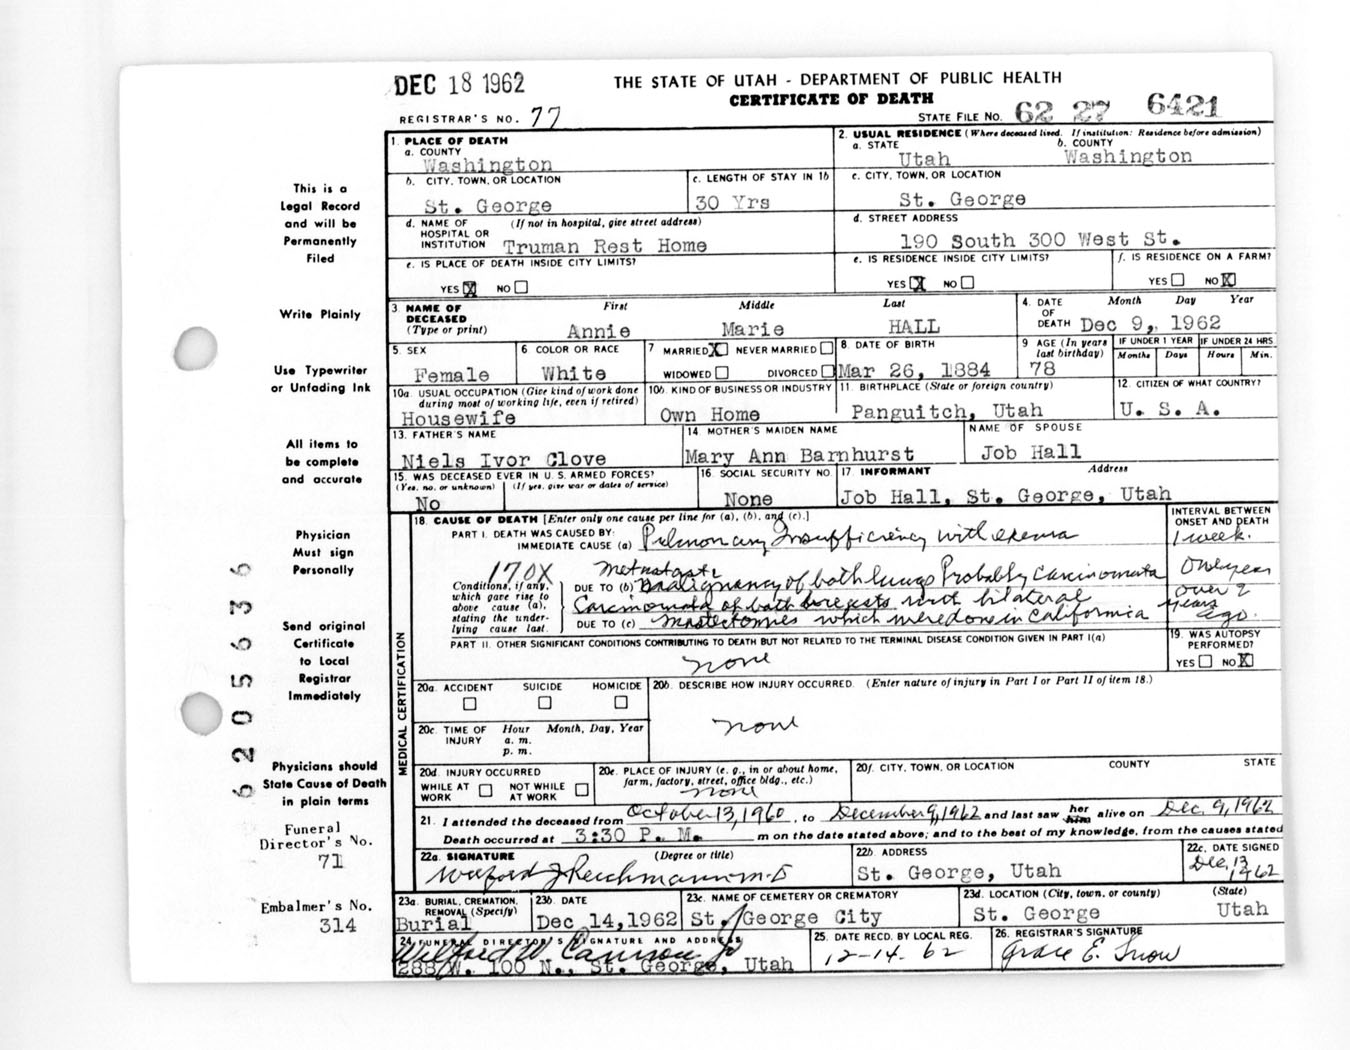 DEC 18 1962
THE STATE OF UTAH - DEPARTMENT OF PUBLIC HEALTH
CERTIFICATE OF DEATH
REGISTRAR'S NO. 77
STATE FILE NO. 62 27 6421
This is a
Legal Record
and will be
Permanently
Filed
Write Plainly
Use Typewriter
or Unfading Ink
All items to
be complete
and accurate
Physician
Must sign
Personally
Send original
Certificate
to Local
Registrar
Immediately
Physicians should
State Cause of Death
in plain terms
Funeral
Director's No.
71
Embalmer's No.
314
6205636
1. PLACE OF DEATH
a. COUNTY
Washington
2. USUAL RESIDENCE (Where deceased lived. If institution: Residence before admission)
a. STATE b. COUNTY
Utah Washington
b. CITY, TOWN, OR LOCATION
St. George
c. LENGTH OF STAY IN 1b
30 Yrs
c. CITY, TOWN, OR LOCATION
St. George
d. NAME OF (If not in hospital, give street address)
HOSPITAL OR
INSTITUTION Truman Rest Home
d. STREET ADDRESS
190 South 300 West St.
e. IS PLACE OF DEATH INSIDE CITY LIMITS?
YES X NO
e. IS RESIDENCE INSIDE CITY LIMITS?
YES X NO
f. IS RESIDENCE ON A FARM?
YES NO X
3. NAME OF First Middle Last
DECEASED
(Type or print) Annie Marie HALL
4. DATE Month Day Year
OF
DEATH Dec 9, 1962
5. SEX
Female
6 COLOR OR RACE
White
7 MARRIED X NEVER MARRIED
WIDOWED DIVORCED
8. DATE OF BIRTH
Mar 26, 1884
9 AGE (In years
last birthday)
78
IF UNDER 1 YEAR IF UNDER 24 HRS
Months Days Hours Min.
10a. USUAL OCCUPATION (Give kind of work done
during most of working life, even if retired)
Housewife
10b. KIND OF BUSINESS OR INDUSTRY
Own Home
11. BIRTHPLACE (State or foreign country)
Panguitch, Utah
12. CITIZEN OF WHAT COUNTRY?
U. S. A.
13. FATHER'S NAME
Niels Ivor Clove
14 MOTHER'S MAIDEN NAME
Mary Ann Barnhurst
NAME OF SPOUSE
Job Hall
15. WAS DECEASED EVER IN U. S. ARMED FORCES?
(Yes, no, or unknown) (If yes, give war or dates of service)
No
16 SOCIAL SECURITY NO.
None
17 INFORMANT Address
Job Hall, St. George, Utah
MEDICAL CERTIFICATION
18. CAUSE OF DEATH [Enter only one cause per line for (a), (b), and (c).]
INTERVAL BETWEEN
ONSET AND DEATH
PART I. DEATH WAS CAUSED BY:
IMMEDIATE CAUSE (a) Pulmonary Insufficiency with edema
1 week.
170X
Conditions, if any,
which gave rise to
above cause (a),
stating the under-
lying cause last.
Metastatic
DUE TO (b) Malignancy of both lungs Probably Carcinomata
One year
Carcinomata of both breasts with bilateral
DUE TO (c) mastectomies which were done in California
over 2
years
ago.
PART II. OTHER SIGNIFICANT CONDITIONS CONTRIBUTING TO DEATH BUT NOT RELATED TO THE TERMINAL DISEASE CONDITION GIVEN IN PART I(a)
none
19. WAS AUTOPSY
PERFORMED?
YES NO X
20a. ACCIDENT SUICIDE HOMICIDE
20b. DESCRIBE HOW INJURY OCCURRED. (Enter nature of injury in Part I or Part II of item 18.)
none
20c. TIME OF Hour Month, Day, Year
INJURY a. m.
p. m.
20d. INJURY OCCURRED
WHILE AT NOT WHILE
WORK AT WORK
20e. PLACE OF INJURY (e. g., in or about home,
farm, factory, street, office bldg., etc.)
none
20f. CITY, TOWN, OR LOCATION COUNTY STATE
21. I attended the deceased from October 13, 1960, to December 9, 1962 and last saw her him alive on Dec. 9, 1962
Death occurred at 3:30 P. M. m on the date stated above; and to the best of my knowledge, from the causes stated
22a. SIGNATURE (Degree or title)
Wilford J Reichmann M.D
22b. ADDRESS
St. George, Utah
22c. DATE SIGNED
Dec, 13
1962
23a. BURIAL, CREMATION,
REMOVAL (Specify)
Burial
23b. DATE
Dec 14, 1962
23c. NAME OF CEMETERY OR CREMATORY
St. George City
23d. LOCATION (City, town, or county) (State)
St. George Utah
24 FUNERAL DIRECTOR'S SIGNATURE AND ADDRESS
Wilford W. Cannon Jr
288 W. 100 N., St. George, Utah
25. DATE RECD. BY LOCAL REG.
12-14-62
26. REGISTRAR'S SIGNATURE
Grace E. Snow